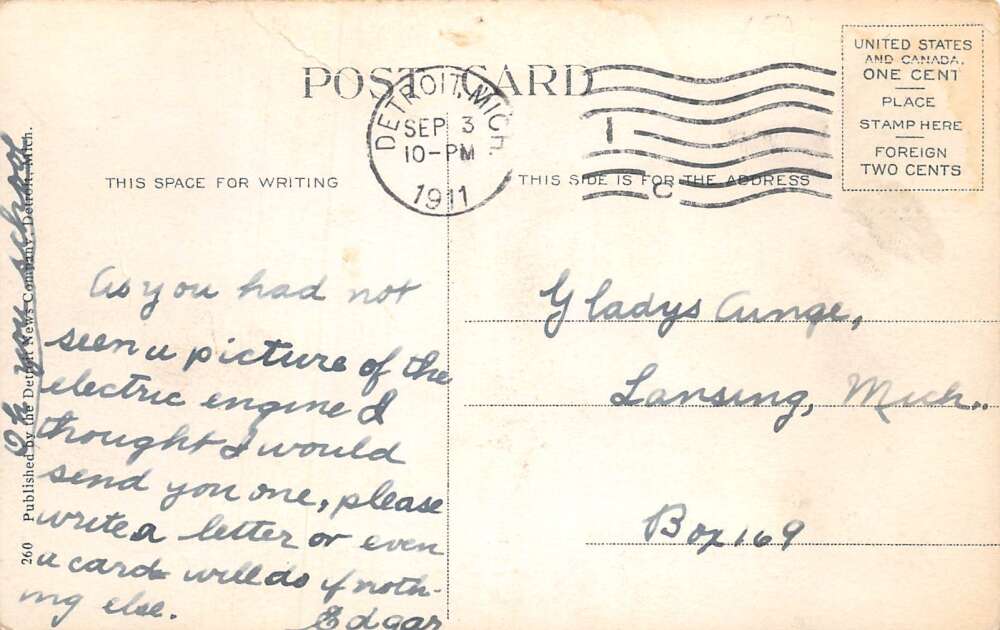 POST CARD
DETROIT, MICH.
SEP 3
10-PM
1911
UNITED STATES
AND CANADA.
ONE CENT
PLACE
STAMP HERE
FOREIGN
TWO CENTS
THIS SPACE FOR WRITING
THIS SIDE IS FOR THE ADDRESS
As you had not
seen a picture of the
electric engine I
thought I would
send you one, please
write a letter or even
a card will do if noth-
ing else.
Edgar
school
260 Published by the Detroit News Company, Detroit, Mich.
Gladys Aunge,
Lansing, Mich..
Box 169